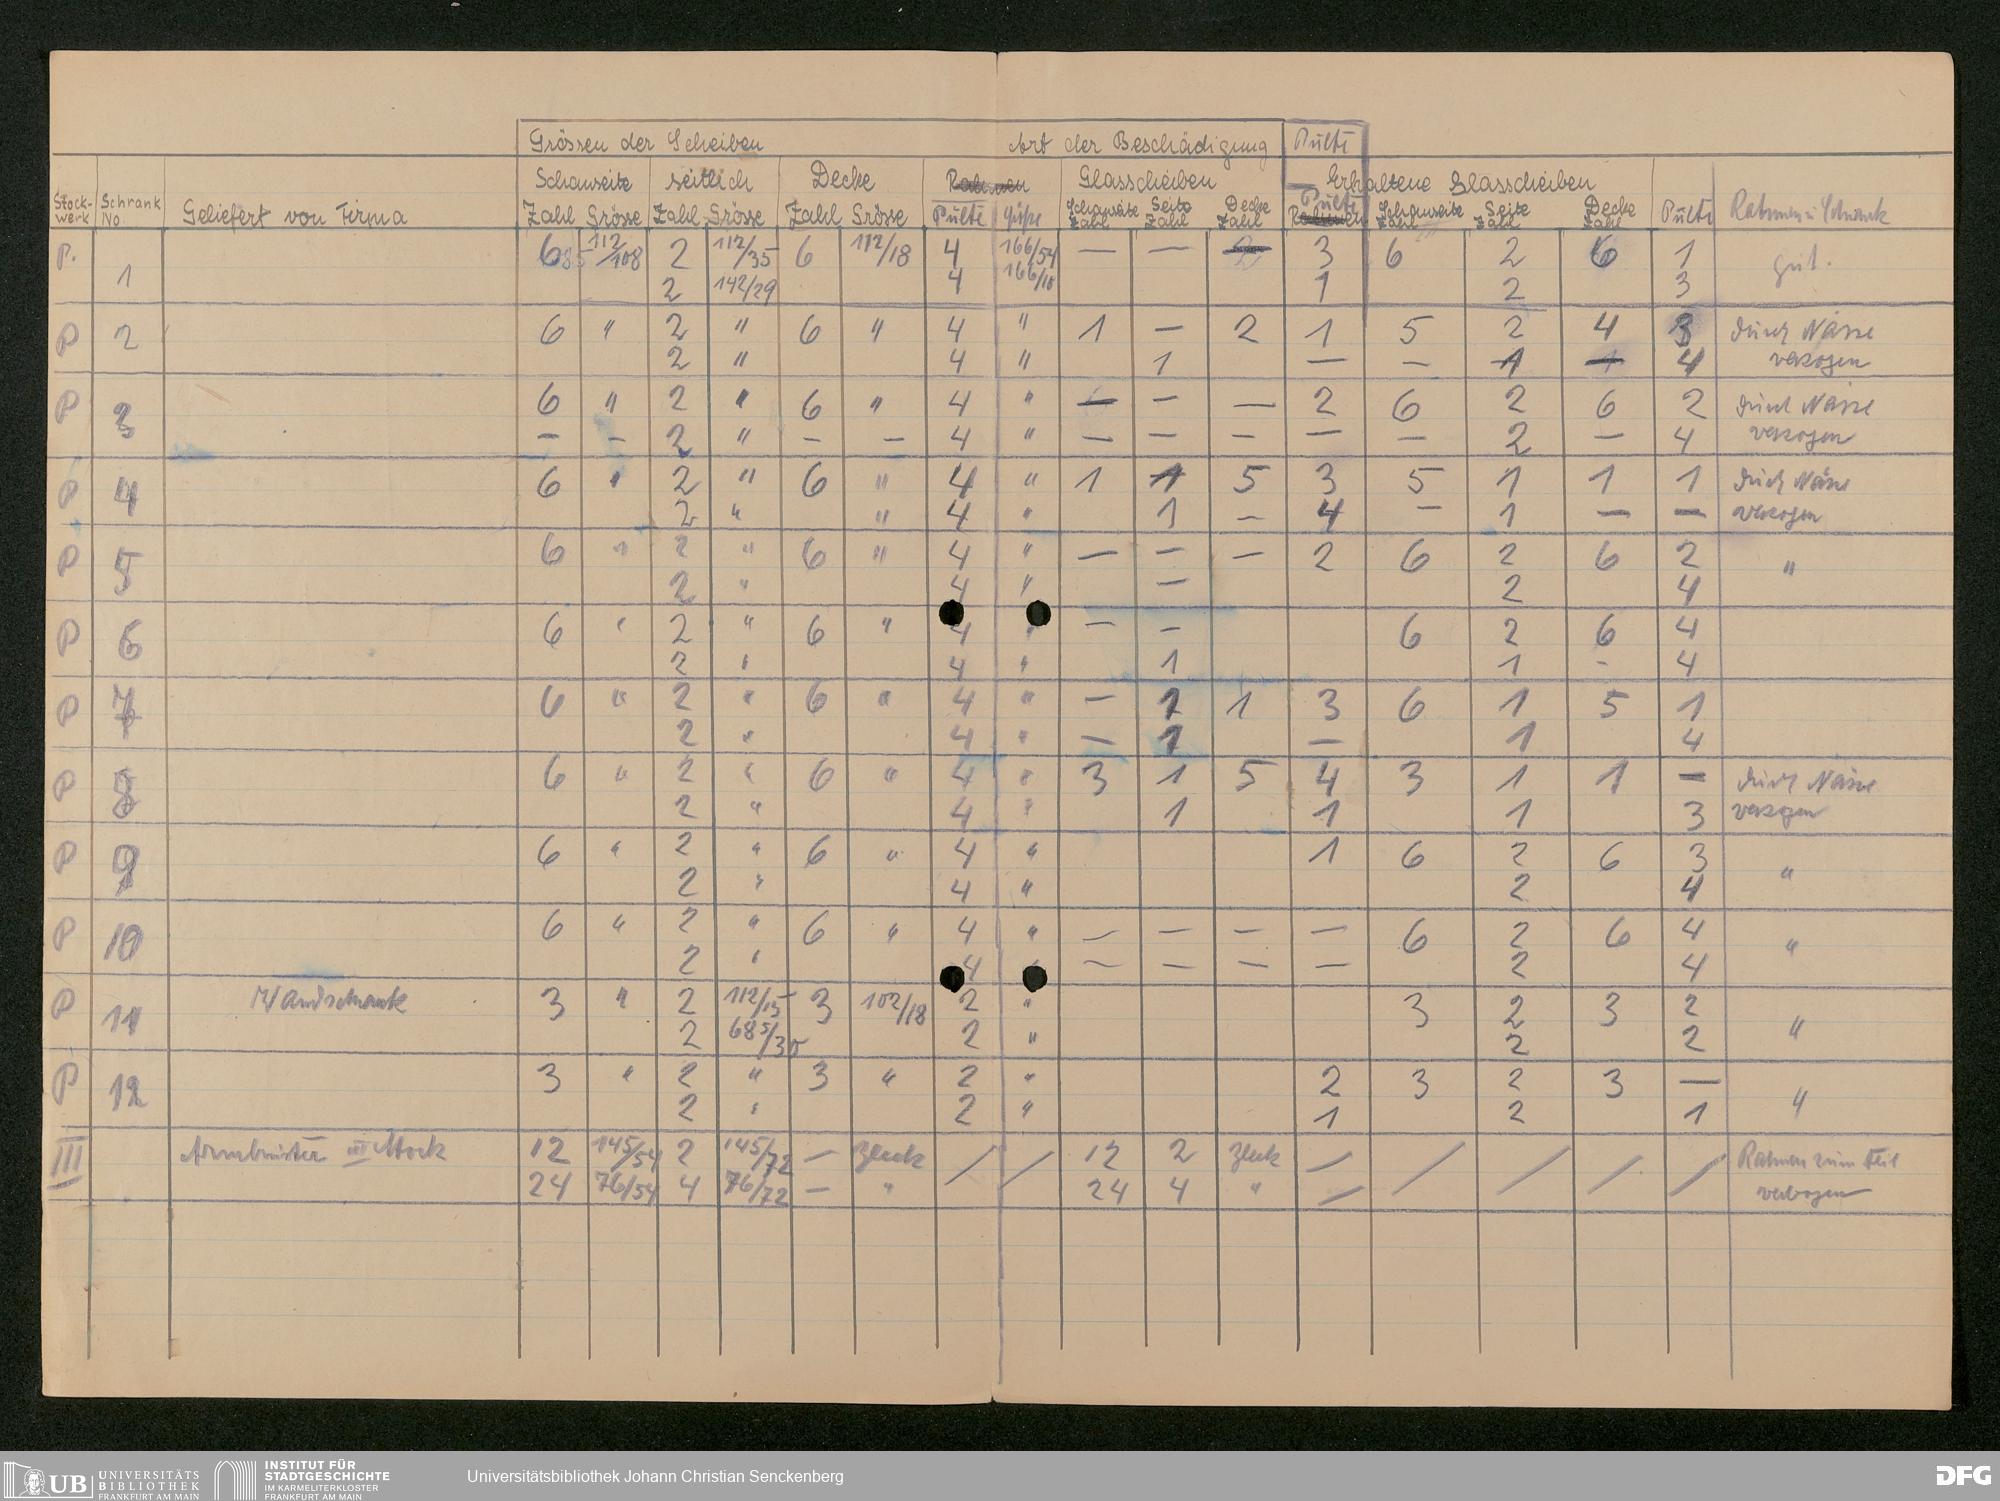 Grössen der Scheiben Art der Beschädigung Pulte
Schauseite seitlich Decke Rahmen Glasscheiben Erhaltene Glasscheiben
Stock-werk Schrank No. Geliefert von Firma Zahl Grösse Zahl Grösse Zahl Grösse Pulte Schauseite Zahl Seite Zahl Decke Zahl Pulte Rahmen Schauseite Zahl Seite Zahl Decke Zahl Pulte Rahmen u. Schrank
P. 1 6 112/108 2 112/35 6 112/18 4 166/54 — — 2 3 6 2 6 1 gut.
2 142/29 4 166/18 1 2 3
P 2 6 " 2 " 6 " 4 " 1 — 2 1 5 2 4 3 durch Nässe
2 " 4 " 1 — — 1 — 4 verzogen
P 3 6 " 2 " 6 " 4 " — — — 2 6 2 6 2 durch Nässe
— — 2 " — — 4 " — — — — — 2 — 4 verzogen
P 4 6 " 2 " 6 " 4 " 1 1 5 3 5 1 1 1 durch Nässe
2 " " 4 " 1 — 4 — 1 — — verzogen
P 5 6 " 2 " 6 " 4 " — — — 2 6 2 6 2 "
2 " 4 " — 2 4
P 6 6 " 2 " 6 " 4 " — — 6 2 6 4
2 " 4 " 1 1 - 4
P 7 6 " 2 " 6 " 4 " — 1 1 3 6 1 5 1
2 " 4 " — 1 — 1 4
P 8 6 " 2 " 6 " 4 " 3 1 5 4 3 1 1 — durch Nässe
2 " 4 " 1 1 1 3 verzogen
P 9 6 " 2 " 6 " 4 " 1 6 2 6 3 "
2 " 4 " 2 4
P 10 6 " 2 " 6 " 4 " — — — — 6 2 6 4 "
2 " 4 " — — — — 2 4
P 11 Wandschrank 3 " 2 112/15 3 102/18 2 " 3 2 3 2 "
2 68⁵/30 2 " 2 2
P 12 3 " 2 " 3 " 2 " 2 3 2 3 — "
2 " 2 " 1 2 1
III Armbruster III Stock 12 145/54 2 145/72 — / / 12 2 — / / / / Rahmen zum Teil
24 76/54 4 76/72 — " 24 4 " — verbogen
UB UNIVERSITÄTS
BIBLIOTHEK
FRANKFURT AM MAIN
INSTITUT FÜR
STADTGESCHICHTE
IM KARMELITERKLOSTER
FRANKFURT AM MAIN
Universitätsbibliothek Johann Christian Senckenberg
DFG